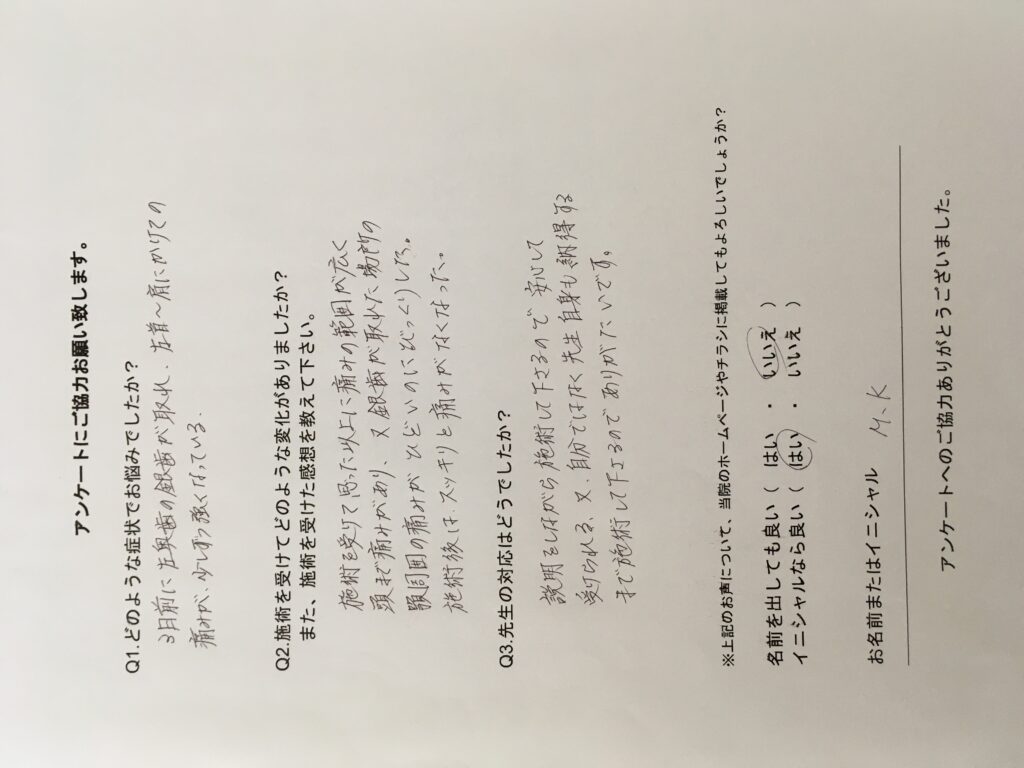 アンケートにご協力お願い致します。
Q1.どのような症状でお悩みでしたか？
3月前に左奥歯の銀歯が取れ、左首～肩にかけての
痛みが、少しずつ強くなっている。
Q2.施術を受けてどのような変化がありましたか？
また、施術を受けた感想を教えて下さい。
施術を受けて思った以上に痛みの範囲が広く
頭まで痛みがあり、又銀歯が取れた場所の
顎周囲の痛みがひどいのにびっくりした。
施術後は、スッキリと痛みがなくなった。
Q3.先生の対応はどうでしたか？
説明をしながら施術して下さるので安心して
受けられる。又、自分ではなく先生自身も納得する
まで施術して下さるのでありがたいです。
※上記のお声について、当院のホームページやチラシに掲載してもよろしいでしょうか？
名前を出しても良い（ はい ・ いいえ ）
イニシャルなら良い（ はい ・ いいえ ）
お名前またはイニシャル M.K
アンケートへのご協力ありがとうございました。